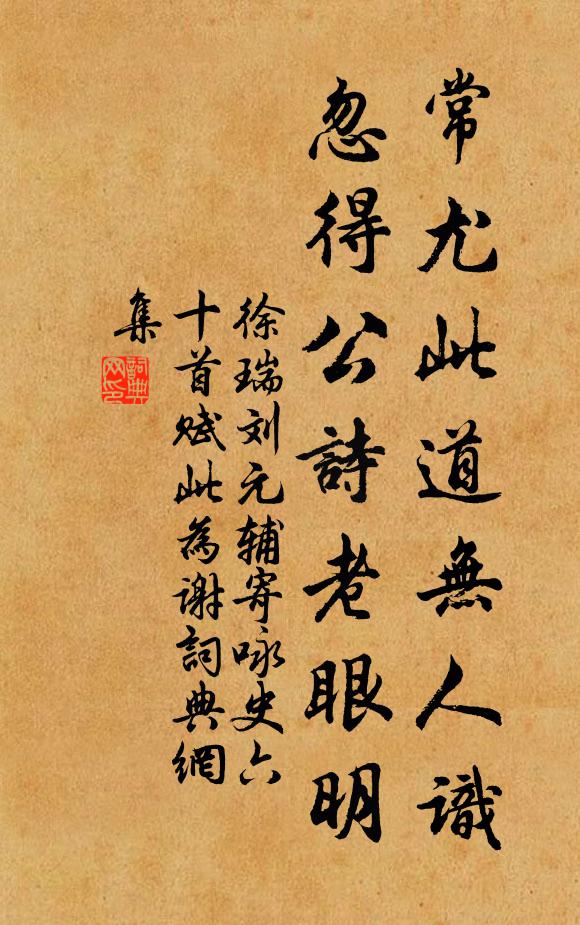 常尤此道無人識
忽得公詩老眼明
徐瑞刘元辅寄咏史六
十首赋此為谢詞典網
集
詞典
网印